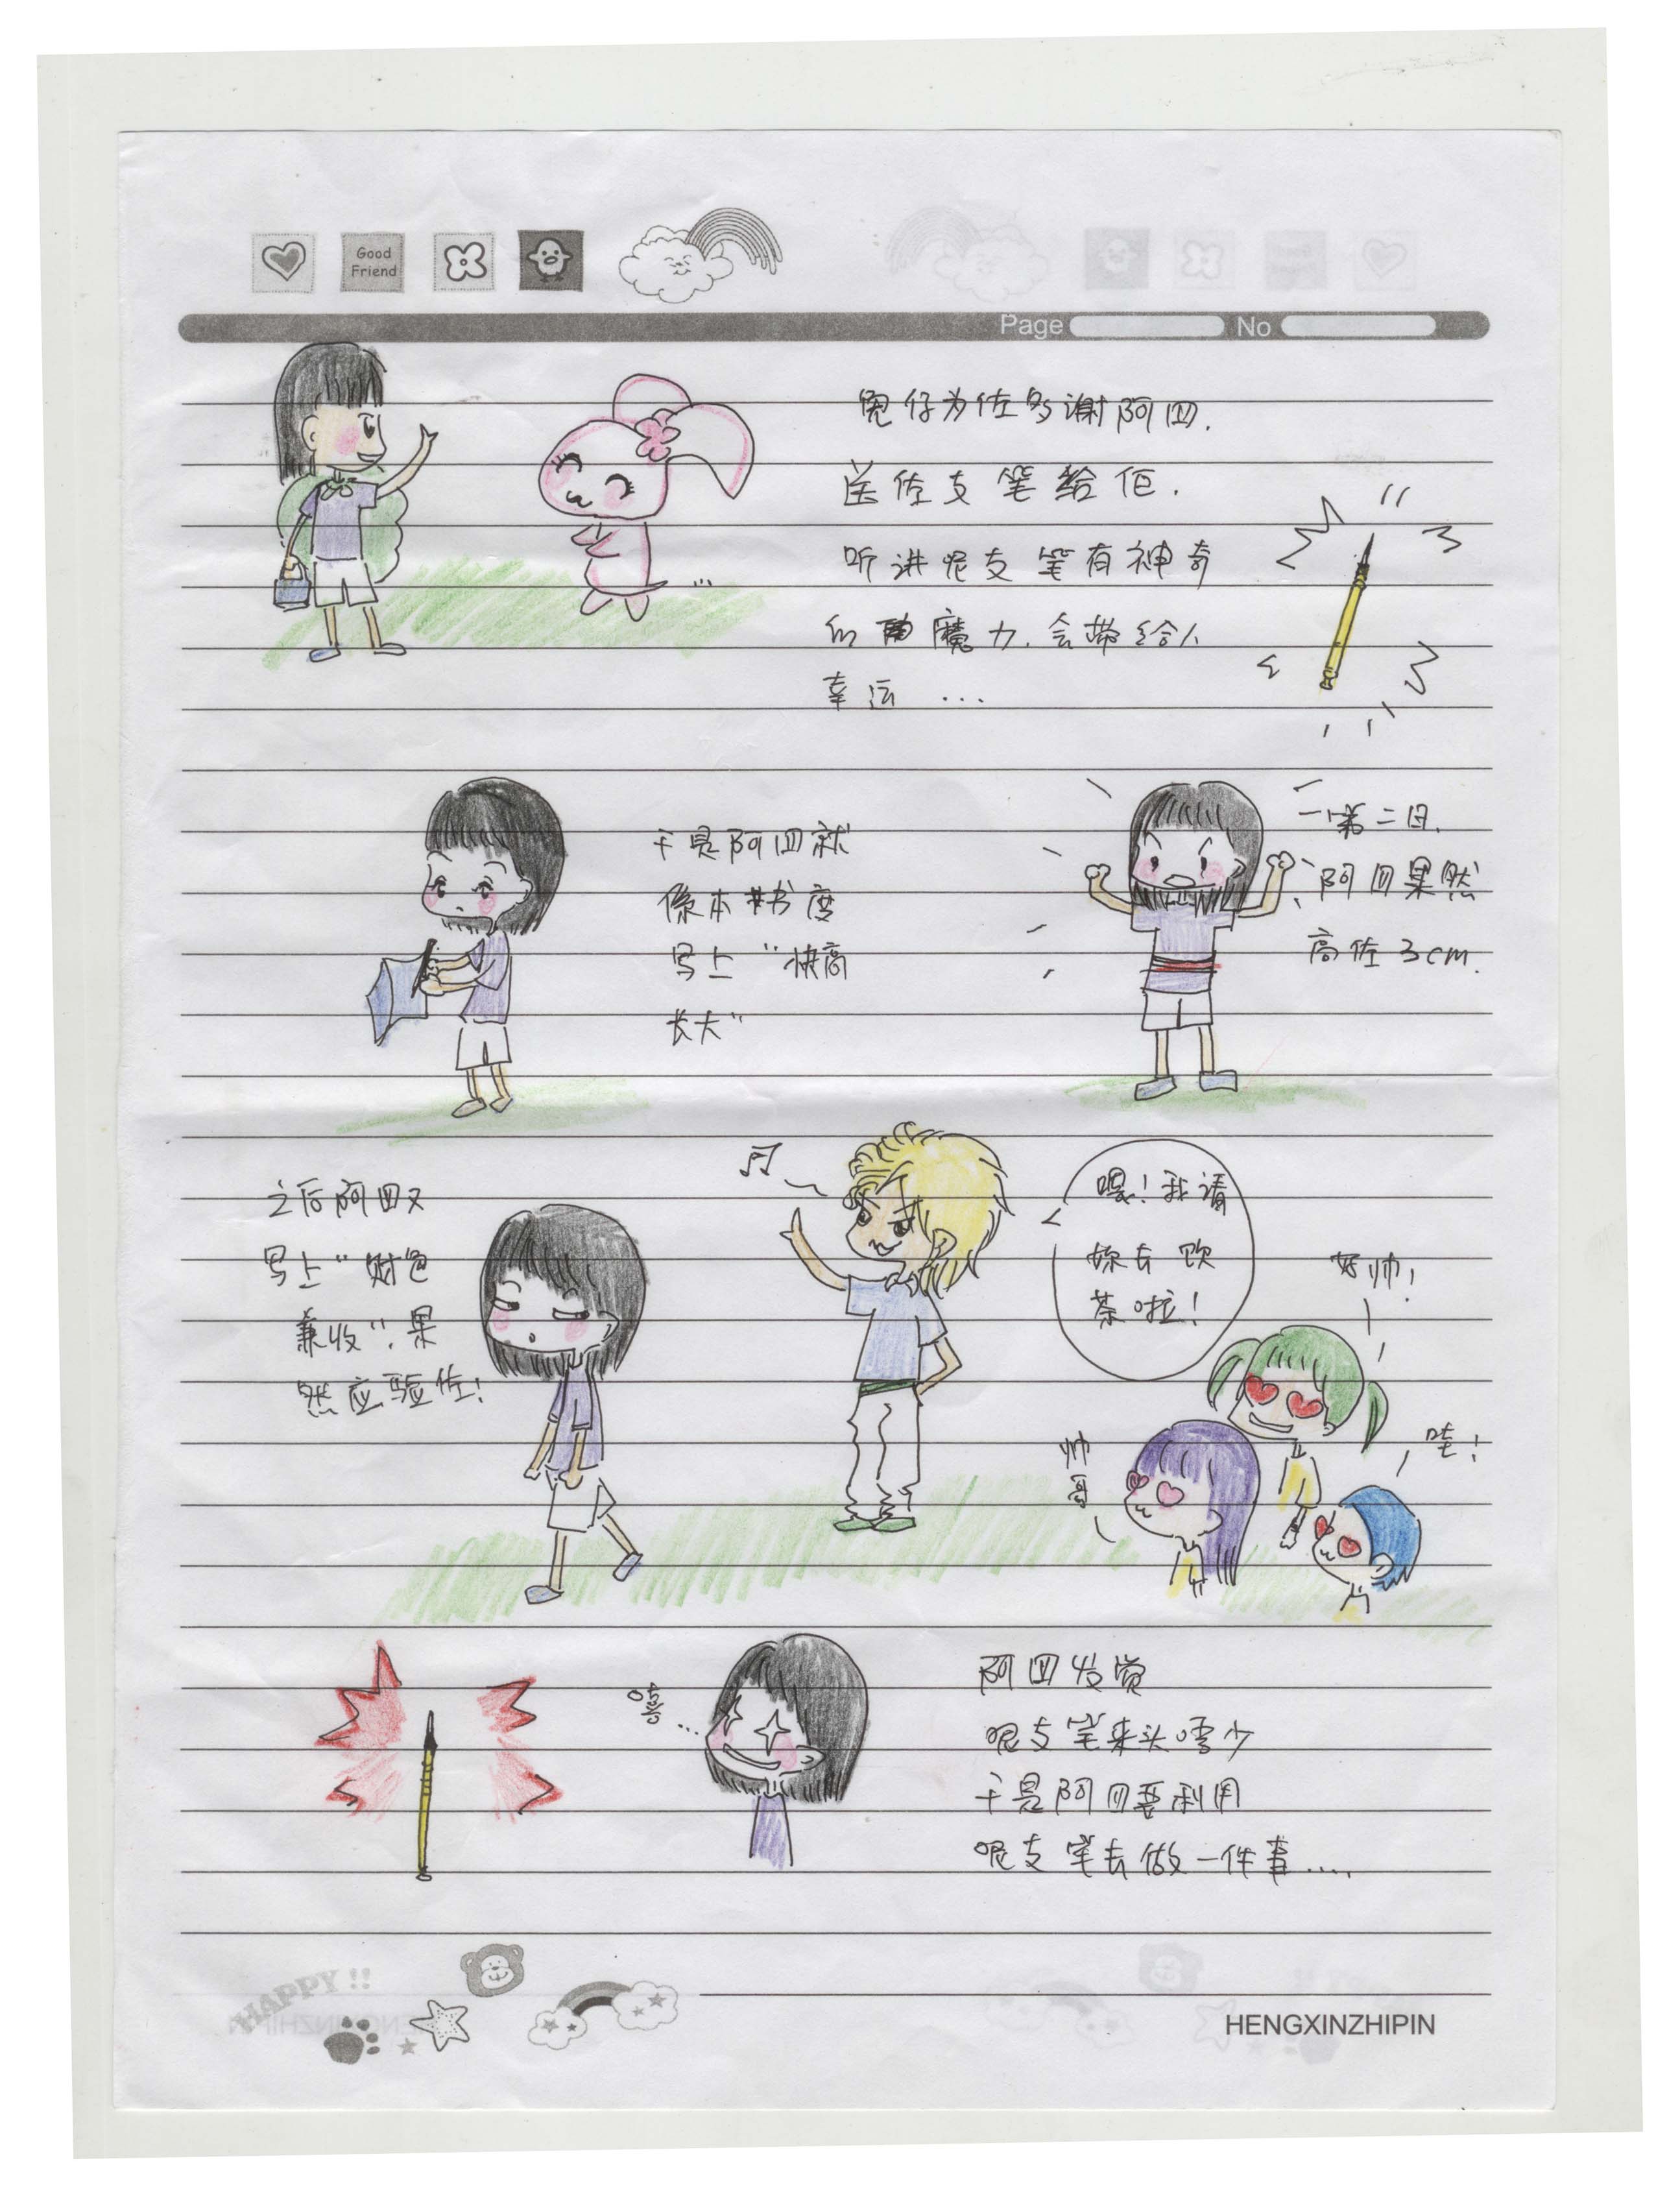 Good
Friend
Page No
兔仔为佐多谢阿四.
送佐支笔给佢.
听讲呢支笔有神奇
的魔力.会带给人
幸运...
于是阿四就
係本书度
写上"快高
长大"
一第二日.
阿四果然
高佐3cm.
之后阿四又
写上"财色
兼收".果
然应验佐!
嘿!我请
妳去饮
茶啦!
好帅!
帅哥
哇!
阿四发觉
呢支笔来头唔少
于是阿四要利用
呢支笔去做一件事....
HAPPY!!
HENGXINZHIPIN